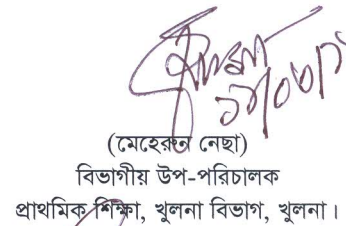 (মেহেরুন নেছা)
বিভাগীয় উপ-পরিচালক
প্রাথমিক শিক্ষা, খুলনা বিভাগ, খুলনা।